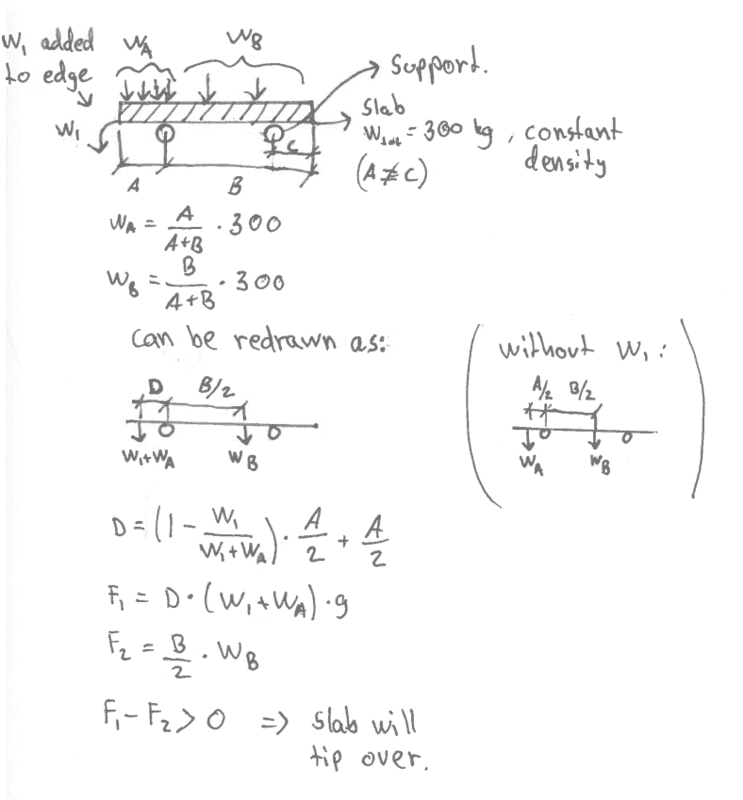 W₁ added to edge
W_A
W_B
Support.
Slab
W_tot = 300 kg, constant density
(A ≠ C)
W₁
C
A
B
W_A = A/(A+B) · 300
W_B = B/(A+B) · 300
can be redrawn as:
D B/2
W₁+W_A W_B
(without W₁:
A/2 B/2
W_A W_B)
D = (1 - W₁/(W₁+W_A)) · A/2 + A/2
F₁ = D · (W₁+W_A) · g
F₂ = B/2 · W_B
F₁ - F₂ > 0 => slab will
tip over.